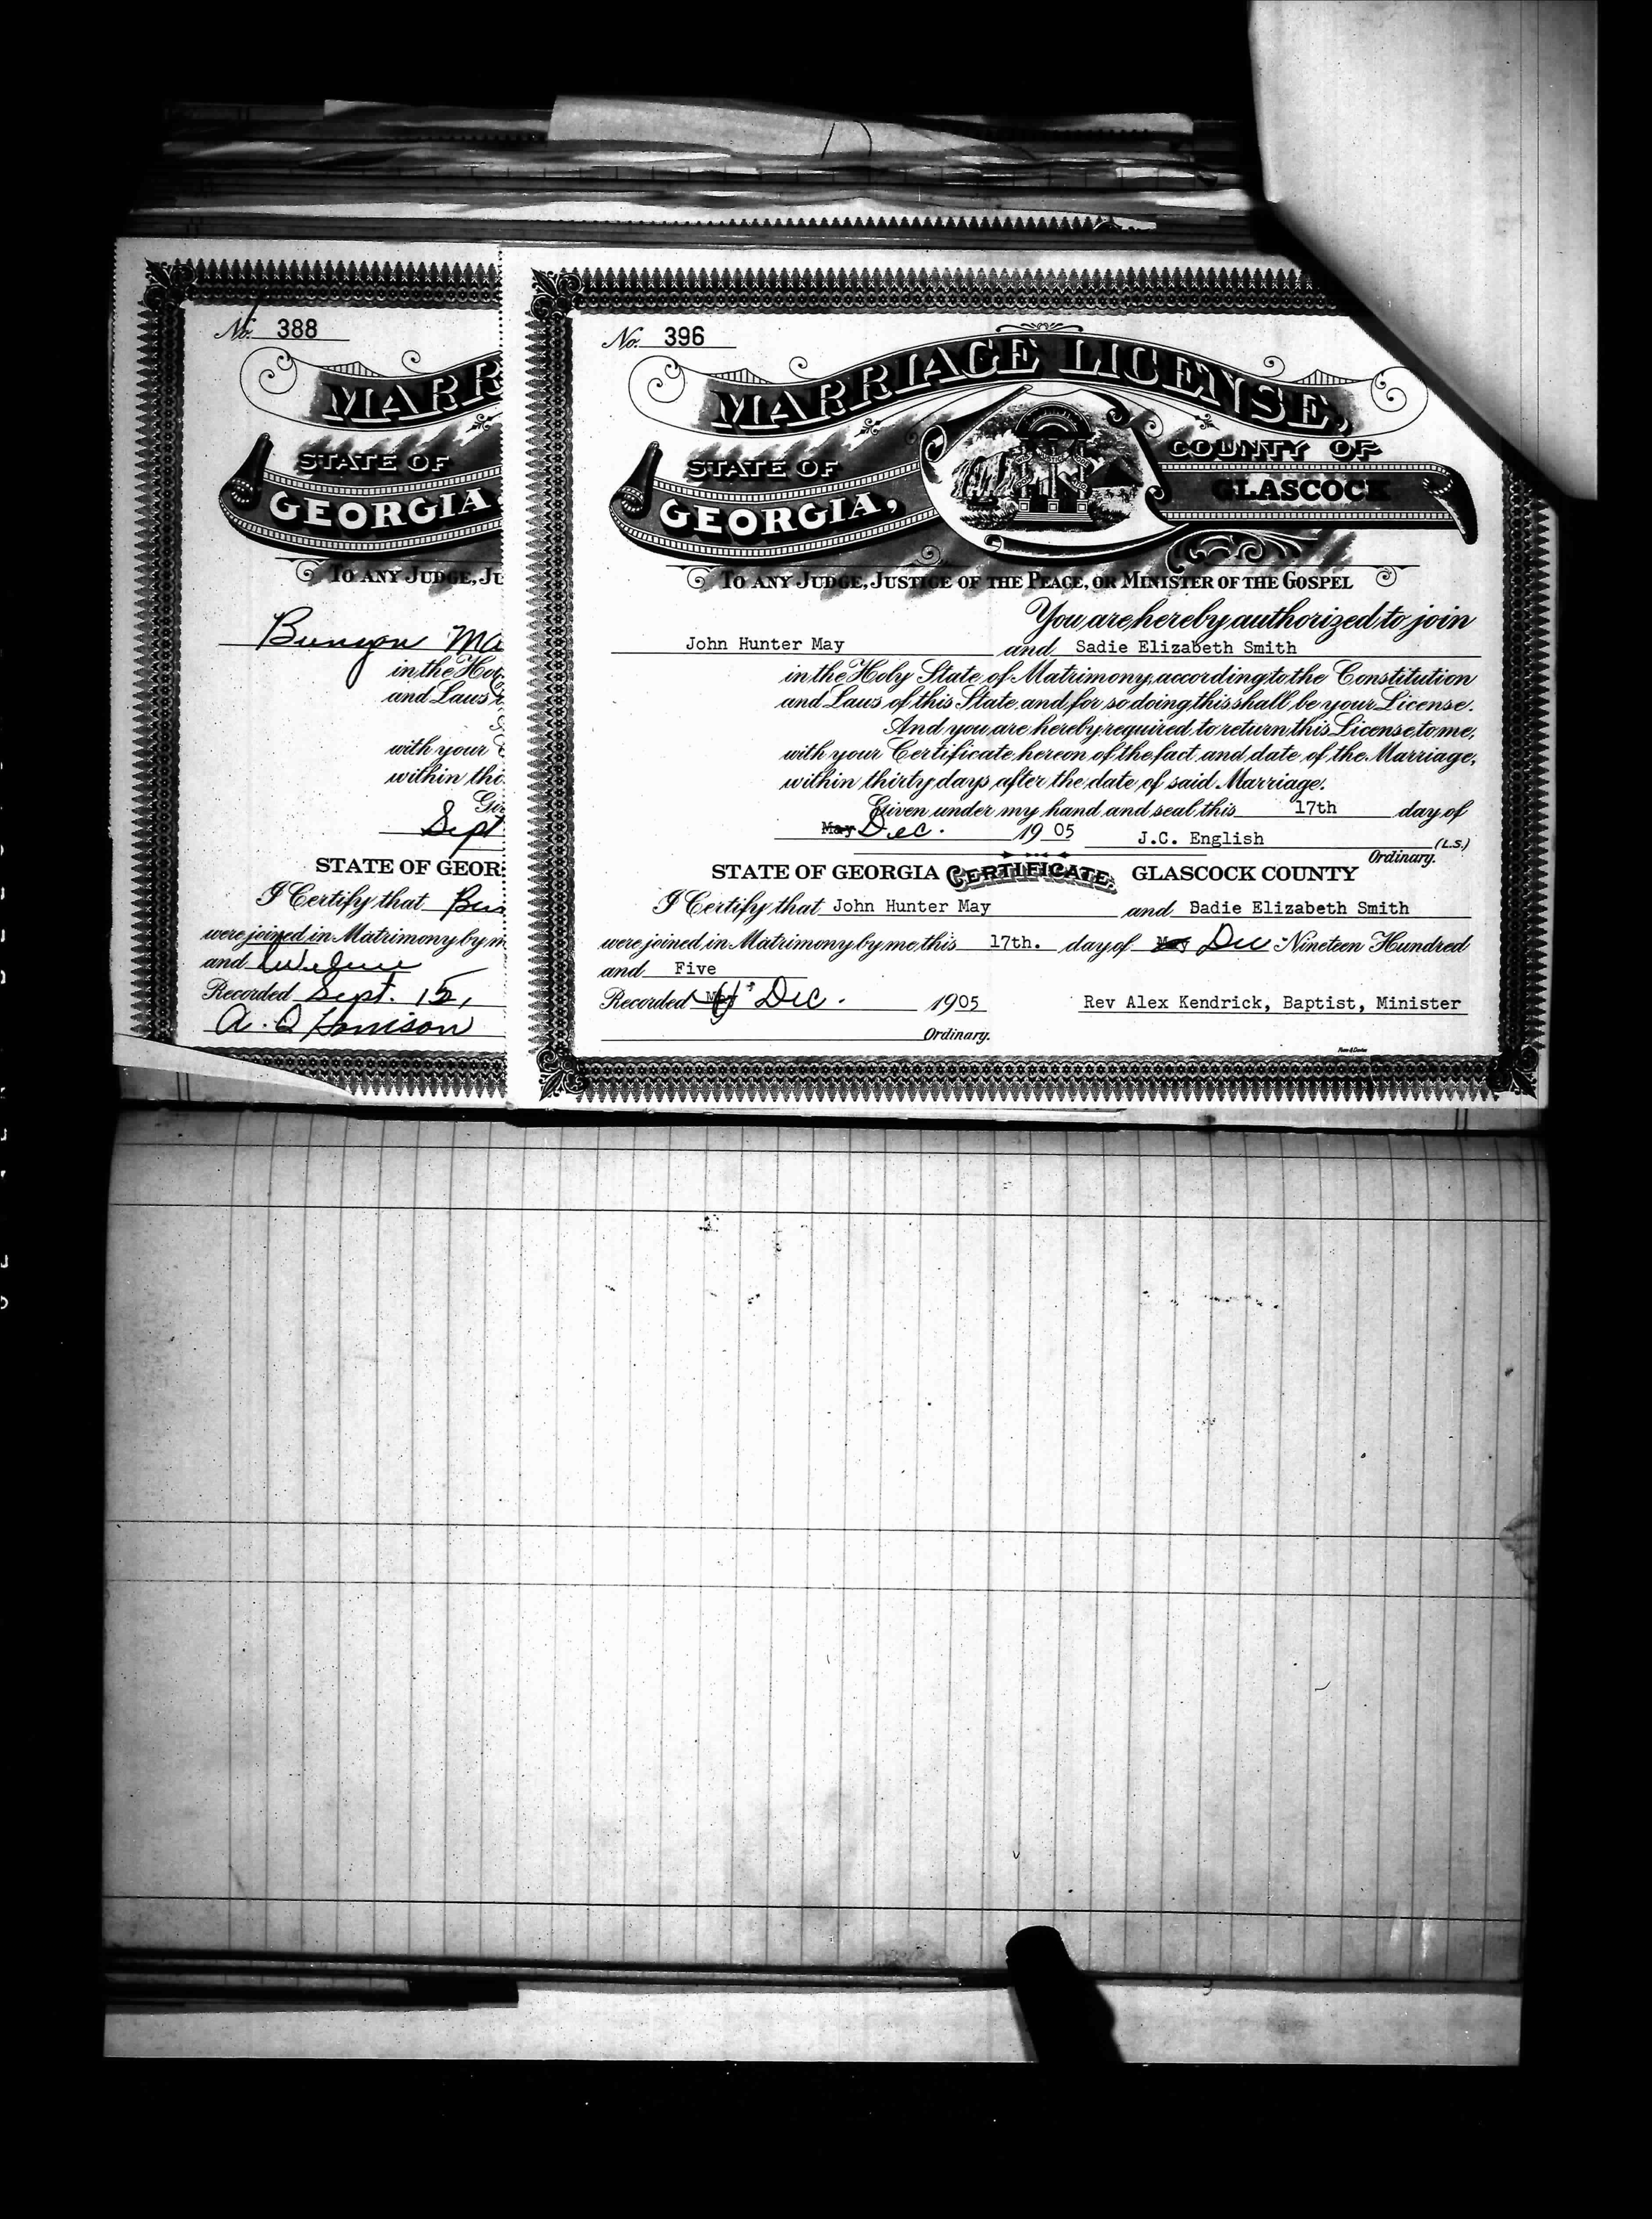 No. 388
MARR
STATE OF
GEORGIA
TO ANY JUDGE, JU
Bunyon Ma
in the Ho
and Laws
with your
within thi
Giv
Sept
STATE OF GEOR
I Certify that Bun
were joined in Matrimony by m
and
Recorded Sept. 15,
A. O Harrison
No. 396
MARRIAGE LICENSE,
STATE OF
GEORGIA,
COUNTY OF
GLASCOCK
TO ANY JUDGE, JUSTICE OF THE PEACE, OR MINISTER OF THE GOSPEL
You are hereby authorized to join
John Hunter May and Sadie Elizabeth Smith
in the Holy State of Matrimony, according to the Constitution
and Laws of this State, and for so doing this shall be your License.
And you are hereby required to return this License to me,
with your Certificate hereon of the fact and date of the Marriage,
within thirty days after the date of said Marriage.
Given under my hand and seal this 17th day of
May Dec. 1905 J.C. English (L.S.)
Ordinary.
STATE OF GEORGIA CERTIFICATE. GLASCOCK COUNTY
I Certify that John Hunter May and Dadie Elizabeth Smith
were joined in Matrimony by me this 17th. day of May Dec Nineteen Hundred
and Five
Recorded Dec. 1905 Rev Alex Kendrick, Baptist, Minister
Ordinary.